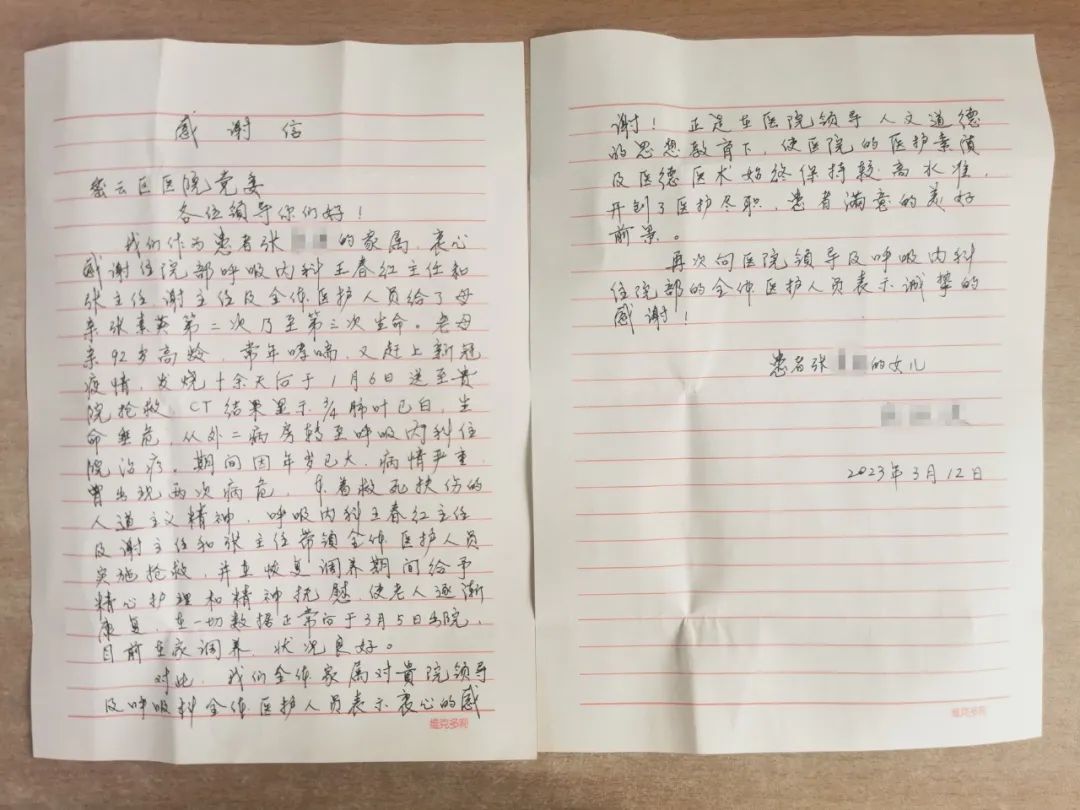 感谢信
密云区医院党委
各位领导你们好！
我们作为患者张 的家属，衷心
感谢住院部呼吸内科王春红主任和
张主任 谢主任及全体医护人员给了母
亲张素英第二次乃至第三次生命。老母
亲92岁高龄，常年哮喘，又赶上新冠
疫情，发烧十余天后于1月6日送至贵
院抢救，CT结果显示3/4肺叶已白，生
命垂危，从外二病房转至呼吸内科住
院治疗。期间因年岁已大，病情严重
曾出现两次病危，本着救死扶伤的
人道主义精神，呼吸内科王春红主任
及谢主任和张主任带领全体医护人员
实施抢救，并在恢复调养期间给予
精心护理和精神抚慰，使老人逐渐
康复，在一切数据正常后于3月5日出院，
目前在家调养，状况良好。
对此，我们全体家属对贵院领导
及呼吸科全体医护人员表示衷心的感
维克多利
谢！正是在医院领导人文道德
的思想教育下，使医院的医护素质
及医德医术始终保持较高水准，
开创了医护尽职，患者满意的美好
前景。
再次向医院领导及呼吸内科
住院部的全体医护人员表示诚挚的
感谢！
患者张 的女儿
2023年3月12日
维克多利